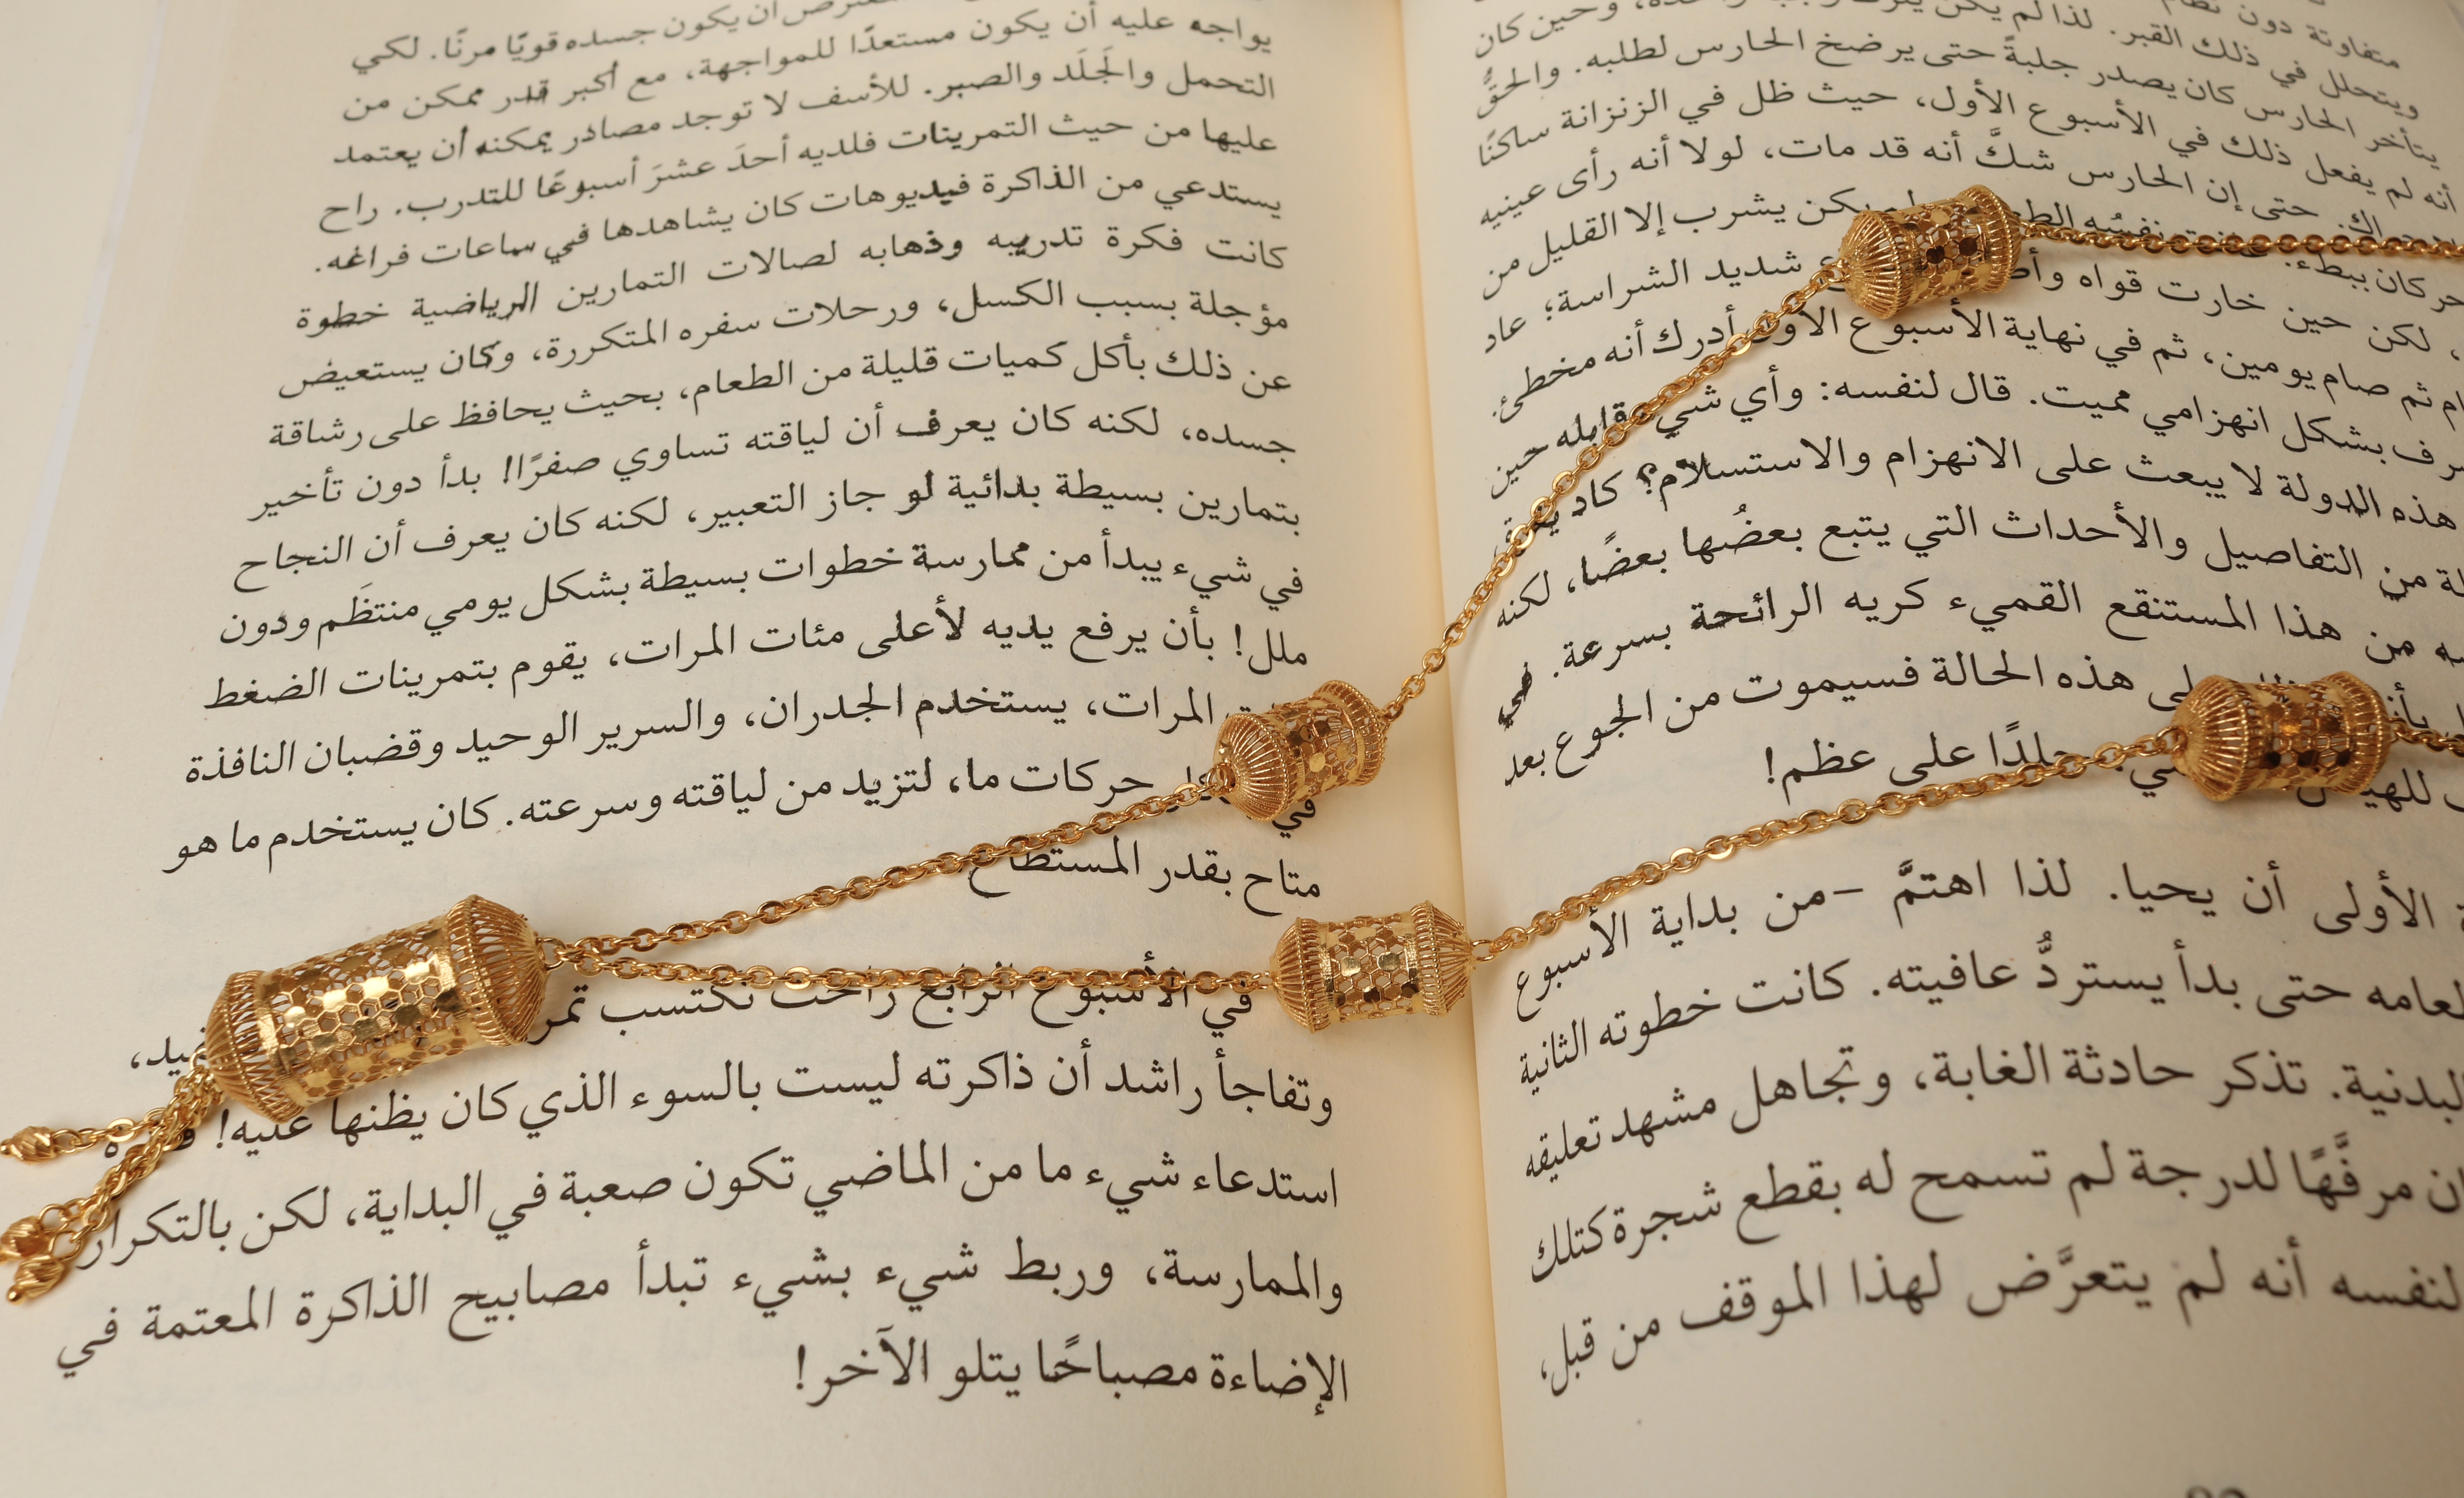 متفاوتة دون
ويتحلل في ذلك القبر. لذا لم يكن وحين كان
يتأخر الحارس كان يصدر جلبةً حتى يرضخ الحارس لطلبه. والحقُّ
أنه لم يفعل ذلك في الأسبوع الأول، حيث ظل في الزنزانة ساكنًا
حتى إن الحارس شكَّ أنه قد مات، لولا أنه رأى عينيه
ببطء. نفسُه يكن يشرب إلا القليل من
لكن حين خارت قواه شديد الشراسة؛ عاد
ثم صام يومين، ثم في نهاية الأسبوع الأول أدرك أنه مخطئ.
بشكل انهزامي مميت. قال لنفسه: وأي شيء قابله حين
هذه الدولة لا يبعث على الانهزام والاستسلام؟ كاد
من التفاصيل والأحداث التي يتبع بعضُها بعضًا، لكنه
من هذا المستنقع القميء كريه الرائحة بسرعة. في
هذه الحالة فسيموت من الجوع بعد
جلدًا على عظم!
الأولى أن يحيا. لذا اهتمَّ –من بداية الأسبوع
حتى بدأ يستردُّ عافيته. كانت خطوته الثانية
البدنية. تذكر حادثة الغابة، وتجاهل مشهد تعليقه
مرفَّهًا لدرجة لم تسمح له بقطع شجرة كتلك
لنفسه أنه لم يتعرَّض لهذا الموقف من قبل،
أن يكون جسده قويًا مرنًا. لكي
يواجه عليه أن يكون مستعدًا للمواجهة، مع أكبر قدر ممكن من
التحمل والجَلَد والصبر. للأسف لا توجد مصادر يمكنه أن يعتمد
عليها من حيث التمرينات فلديه أحدَ عشرَ أسبوعًا للتدرب. راح
يستدعي من الذاكرة فيديوهات كان يشاهدها في ساعات فراغه.
كانت فكرة تدريبه وذهابه لصالات التمارين الرياضية خطوة
مؤجلة بسبب الكسل، ورحلات سفره المتكررة، وكان يستعيض
عن ذلك بأكل كميات قليلة من الطعام، بحيث يحافظ على رشاقة
جسده، لكنه كان يعرف أن لياقته تساوي صفرًا! بدأ دون تأخير
بتمارين بسيطة بدائية لو جاز التعبير، لكنه كان يعرف أن النجاح
في شيء يبدأ من ممارسة خطوات بسيطة بشكل يومي منتظَم ودون
ملل! بأن يرفع يديه لأعلى مئات المرات، يقوم بتمرينات الضغط
المرات، يستخدم الجدران، والسرير الوحيد وقضبان النافذة
في حركات ما، لتزيد من لياقته وسرعته. كان يستخدم ما هو
متاح بقدر المستطاع
في الأسبوع الرابع راحت تكتسب
وتفاجأ راشد أن ذاكرته ليست بالسوء الذي كان يظنها عليه!
استدعاء شيء ما من الماضي تكون صعبة في البداية، لكن بالتكرار
والممارسة، وربط شيء بشيء تبدأ مصابيح الذاكرة المعتمة في
الإضاءة مصباحًا يتلو الآخر!